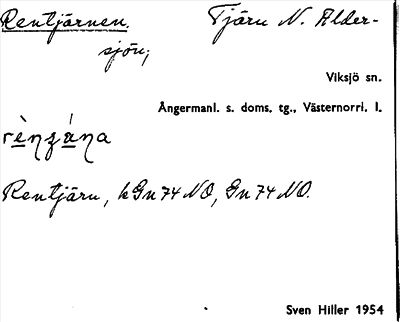 Rentjärnen. Tjärn N. Ålder-
sjön;
Viksjö sn.
Ångermanl. s. doms. tg., Västernorrl. l.
Rentjärn, kGn74NO, Gn74NO.
Sven Hiller 1954